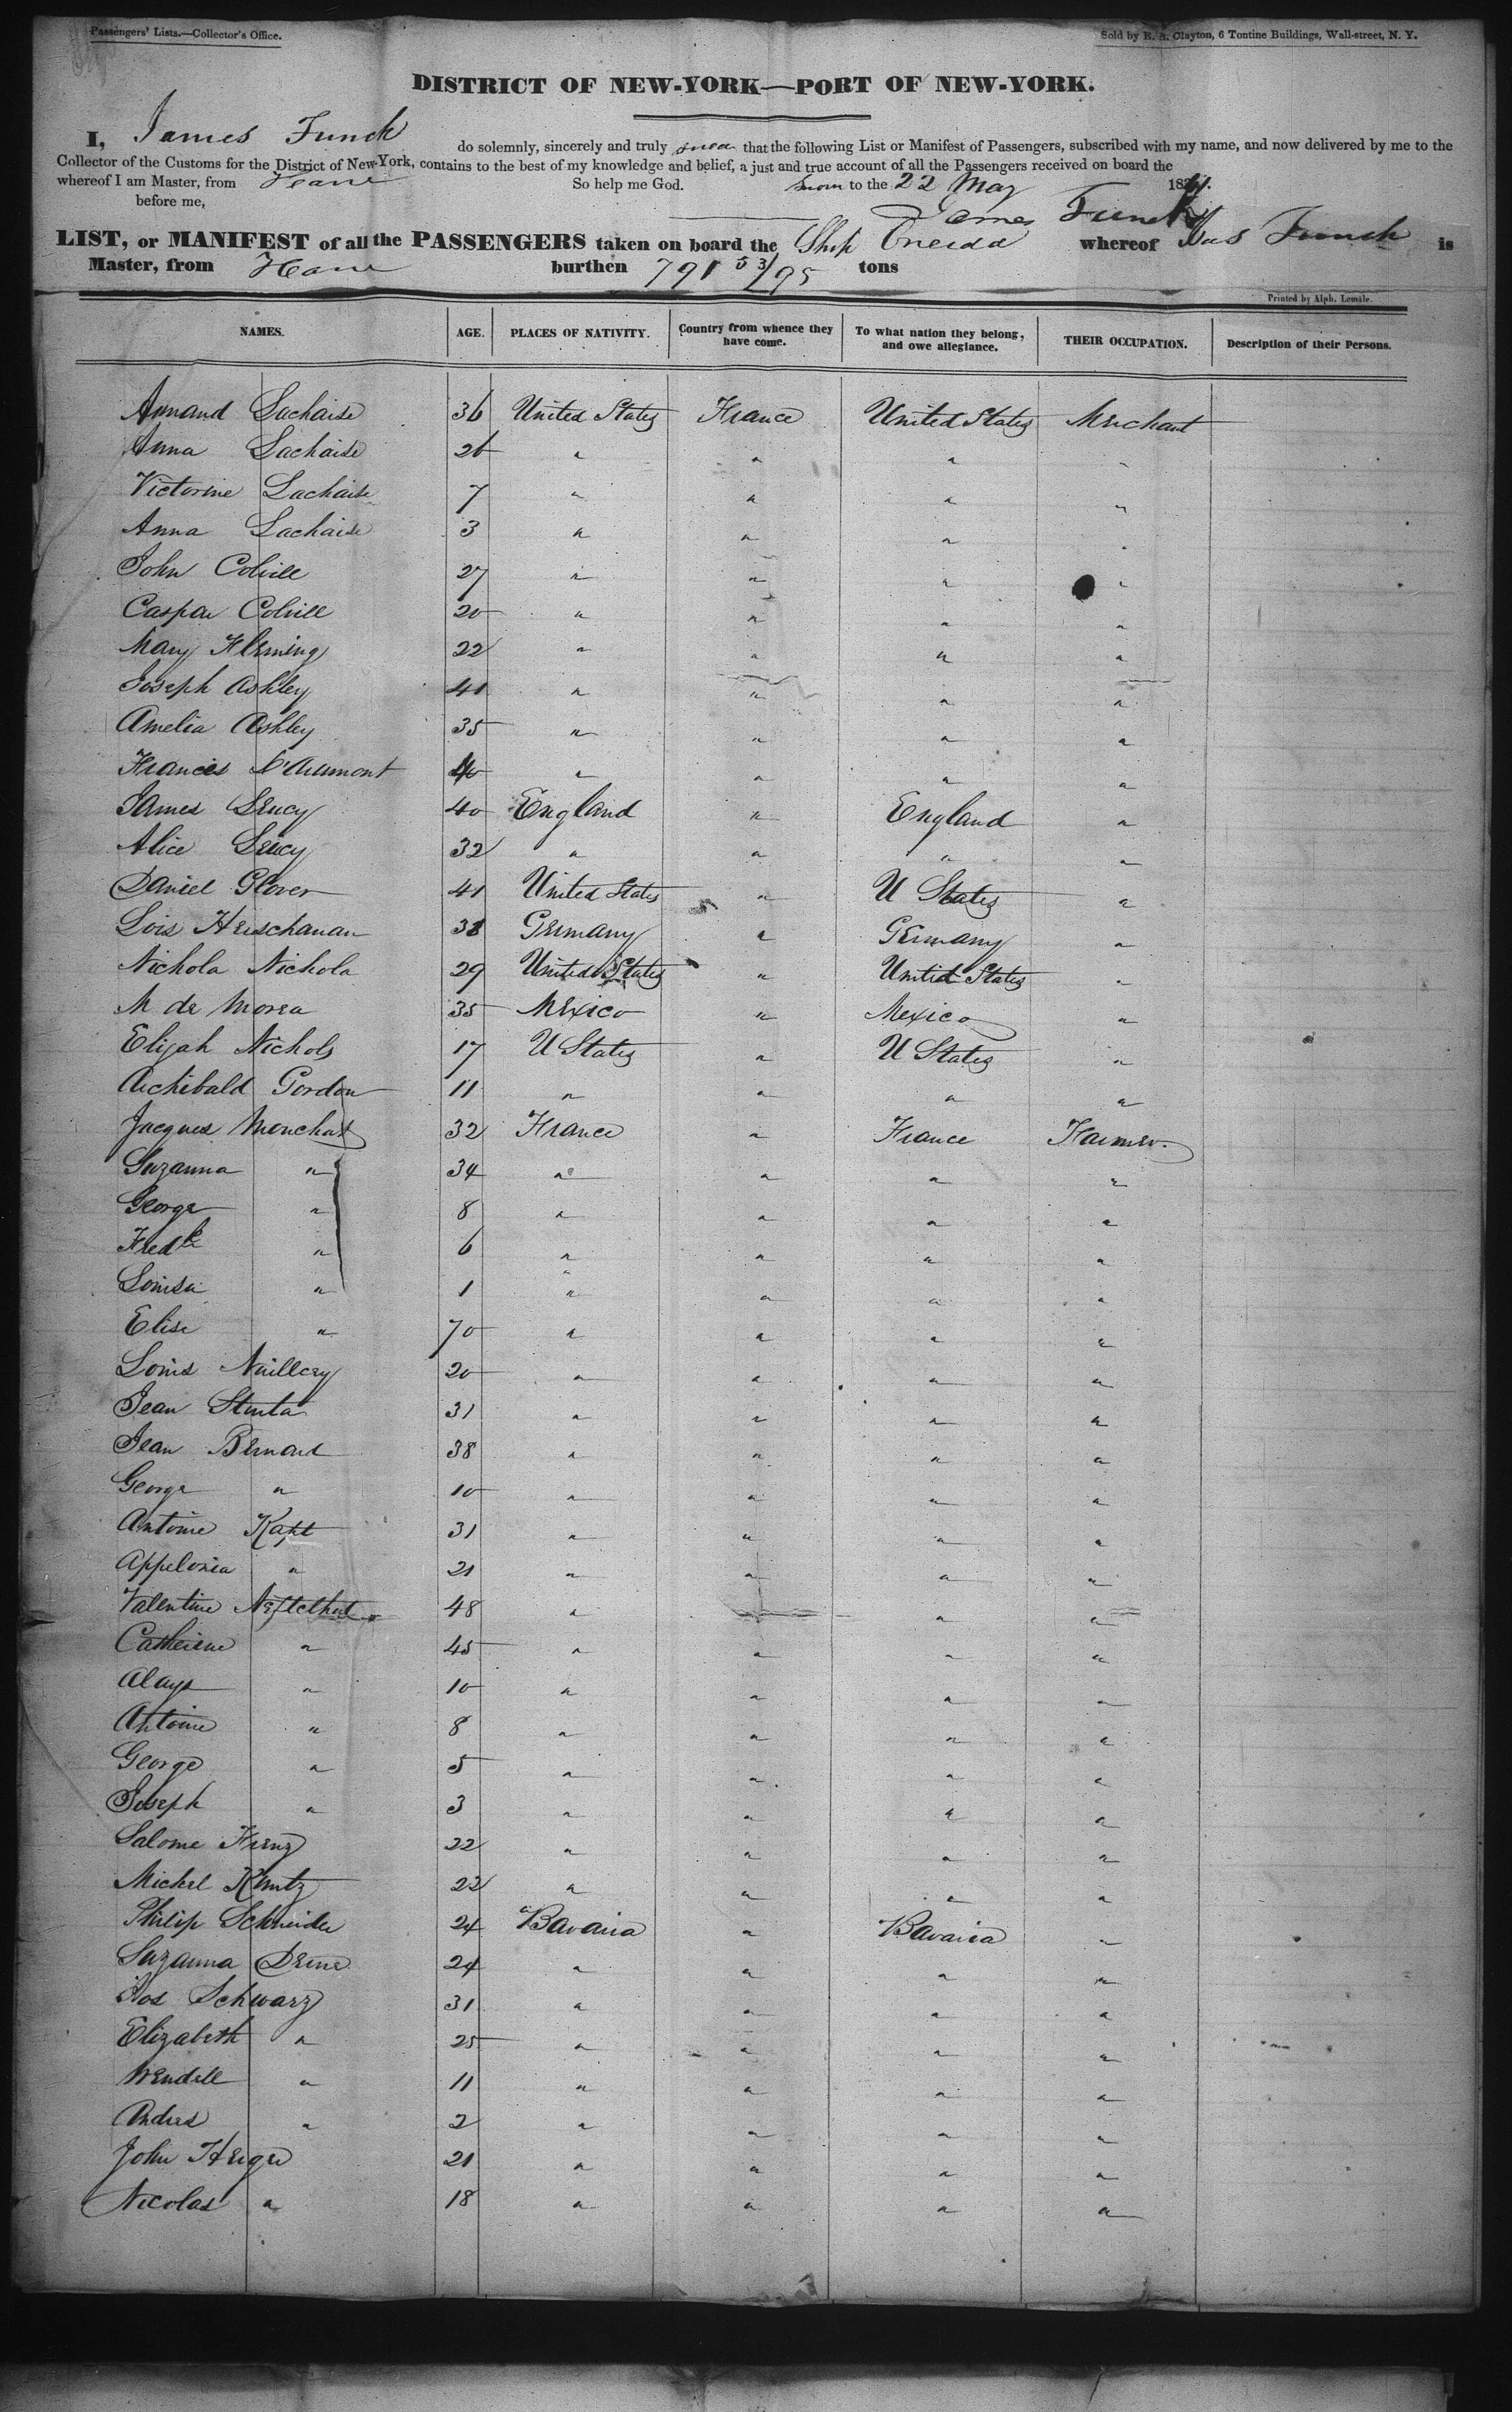 Passengers' Lists.—Collector's Office.
Sold by E. B. Clayton, 6 Tontine Buildings, Wall-street, N. Y.
DISTRICT OF NEW-YORK—PORT OF NEW-YORK.
I, James Funck do solemnly, sincerely and truly swear that the following List or Manifest of Passengers, subscribed with my name, and now delivered by me to the
Collector of the Customs for the District of New-York, contains to the best of my knowledge and belief, a just and true account of all the Passengers received on board the
whereof I am Master, from Havre So help me God. Sworn to the 22 May 18
before me, James Funck
LIST, or MANIFEST of all the PASSENGERS taken on board the Ship Oneida whereof Jas Funck is
Master, from Havre burthen 791 53/95 tons
Printed by Alph. Lemâle.
NAMES. AGE. PLACES OF NATIVITY. Country from whence they have come. To what nation they belong, and owe allegiance. THEIR OCCUPATION. Description of their Persons.
Armand Lachaise 36 United States France United States Merchant
Anna Lachaise 26 " " " "
Victorine Lachaise 7 " " " "
Anna Lachaise 3 " " " "
John Colvill 27 " " " "
Caspar Colvill 20 " " " "
Mary Fleming 22 " " " "
Joseph Ashley 41 " " " "
Amelia Ashley 35 " " " "
Francis D'Arumont 40 " " " "
James Leucy 40 England " England "
Alice Leucy 32 " " " "
Daniel Glover 41 United States " U States "
Lois 38 Germany " Germany "
Nichola Nichola 29 United States " United States "
M de Morea 35 Mexico " Mexico "
Elijah Nichols 17 U States " U States "
Archibald Gordon 11 " " " "
Jacques Monchat 32 France " France Farmer.
Suzanna " 34 " " " "
George " 8 " " " "
Fredk " 6 " " " "
Louisa " 1 " " " "
Elise " 70 " " " "
Louis Nuillery 20 " " " "
Jean 31 " " " "
Jean Bernard 38 " " " "
George " 10 " " " "
Antoine Kapt 31 " " " "
Appelonia " 21 " " " "
Valentine 48 " " " "
Catherine " 45 " " " "
Aloys " 10 " " " "
Antoine " 8 " " " "
George " 5 " " " "
Joseph " 3 " " " "
Salome 22 " " " "
Michel Kuntz 22 " " " "
Philip Schneider 24 " Bavaria " Bavaria "
Suzanna 24 " " " "
Jos Schwarz 31 " " " "
Elizabeth " 25 " " " "
Wendell " 11 " " " "
Andres " 2 " " " "
John 21 " " " "
Nicolas " 18 " " " "